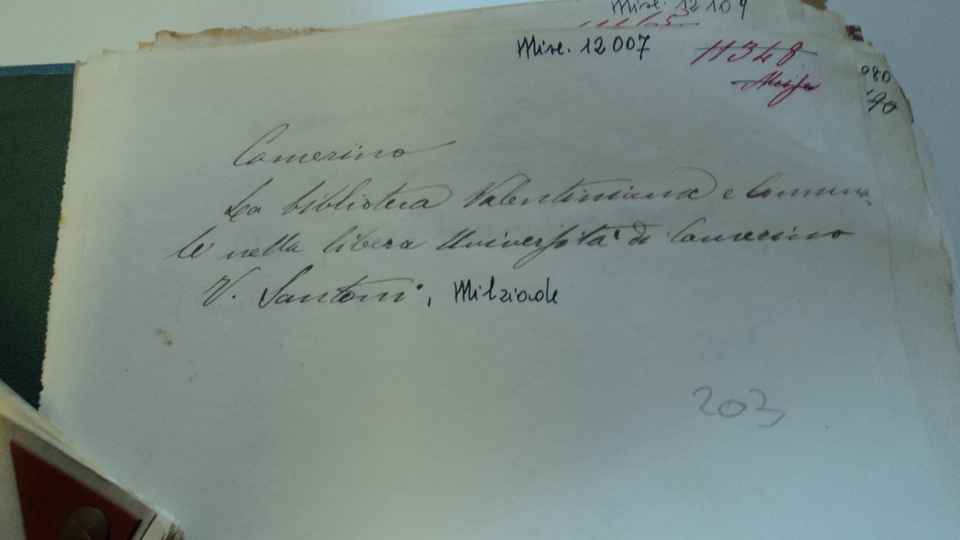 Misc. 12109
Misc. 12007
11348
080
90
Camerino
La biblioteca Valentiniana e Comuna-
le nella libera Università di Camerino
V. Santoni, Milziade
203